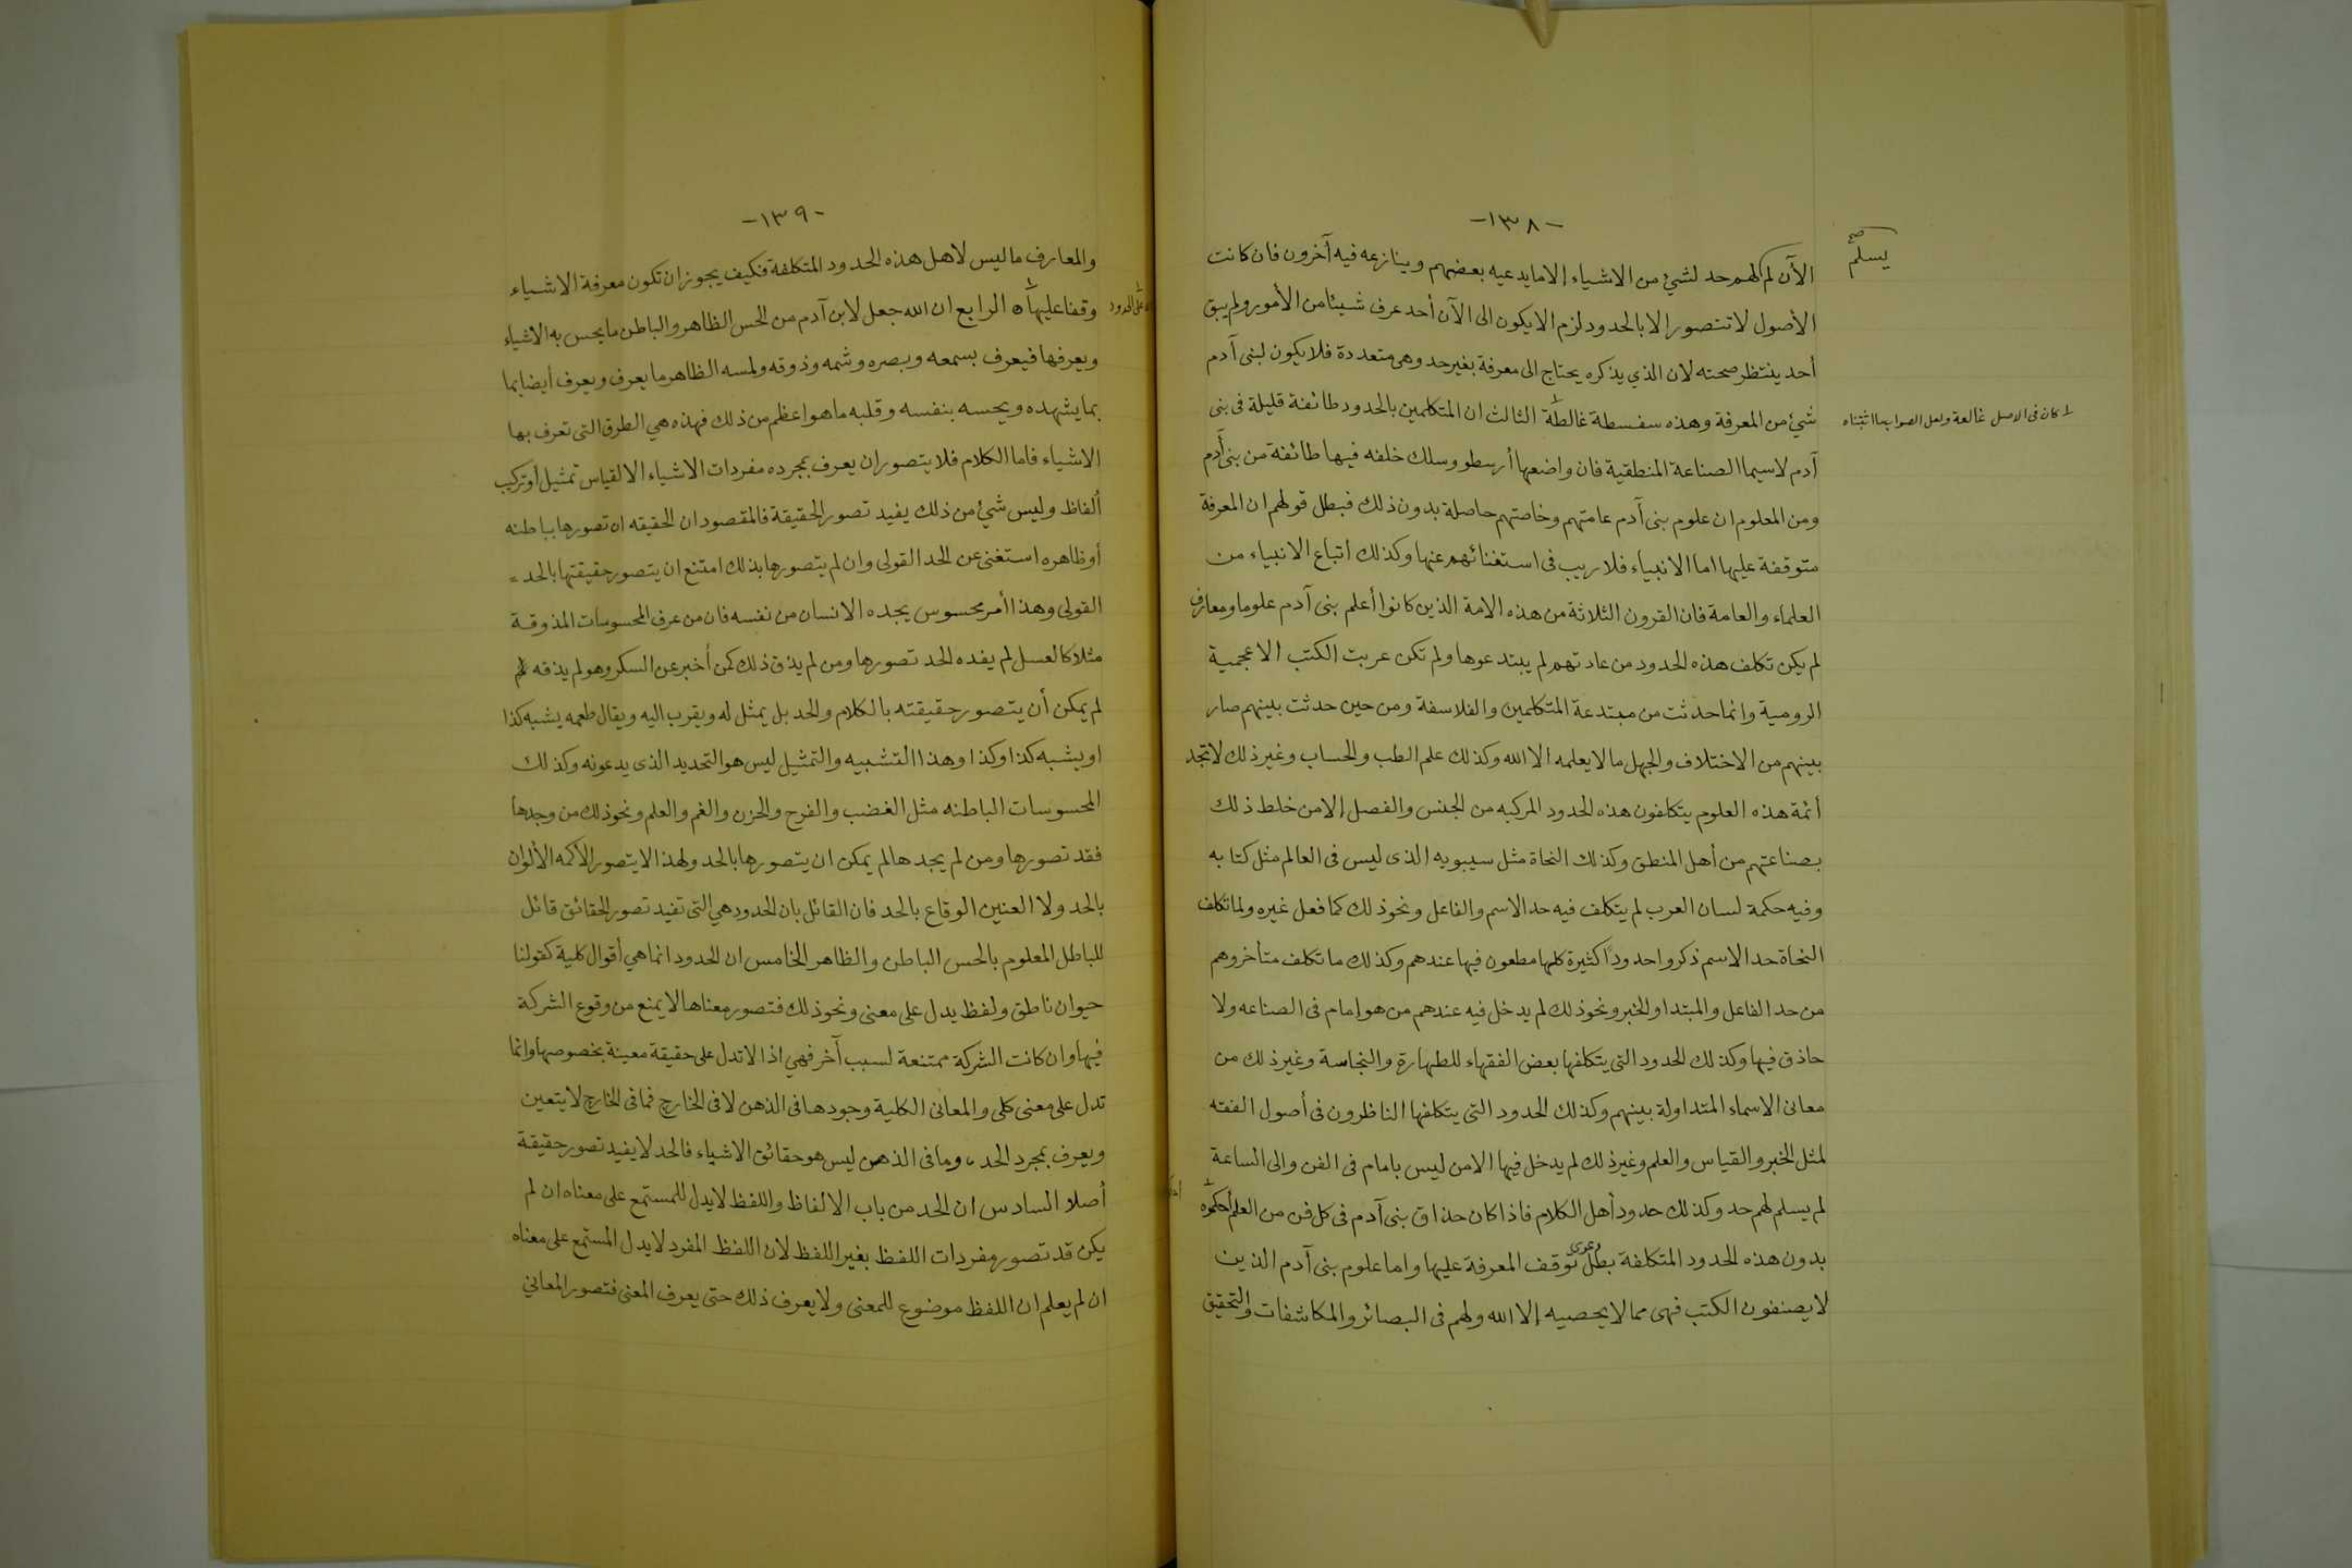 -١٣٨-
يسلم صح
الآن لم لهم حد لشئ من الاشياء الا ما يدعيه بعضهم وينازعه فيه آخرون فان كانت
الأصول لا تتصور الا بالحدود لزم الا يكون الى الآن أحد عرف شيئا من الأمور ولم يبق
أحد ينتظر صحته لان الذي يذكره يحتاج الى معرفة بغير حد وهى متعددة فلا يكون لبنى آدم
شئ من المعرفة وهذه سفسطة غالطة الثالث ان المتكلمين بالحدود طائفة قليلة فى بنى
كان فى الاصل غالعة ولعل الصواب ما اثبتناه
آدم لاسيما الصناعة المنطقية فان واضعها أرسطو وسلك خلفه فيها طائفة من بنى آدم
ومن المعلوم ان علوم بنى آدم عامتهم وخاصتهم حاصلة بدون ذلك فبطل قولهم ان المعرفة
متوقفة عليها اما الانبياء فلا ريب فى استغنائهم عنها وكذلك اتباع الانبياء من
العلماء والعامة فان القرون الثلاثة من هذه الامة الذين كانوا أعلم بنى آدم علوما ومعارف
لم يكن تكلف هذه الحدود من عادتهم لم يبتدعوها ولم تكن عربت الكتب الاعجمية
الرومية وانما حدثت من مبتدعة المتكلمين والفلاسفة ومن حين حدثت بينهم صار
بينهم من الاختلاف والجهل ما لا يعلمه الا الله وكذلك علم الطب والحساب وغير ذلك لا تجد
أئمة هذه العلوم يتكلفون هذه الحدود المركبه من الجنس والفصل إلا من خلط ذلك
بصناعتهم من أهل المنطق وكذلك النحاة مثل سيبويه الذى ليس فى العالم مثل كتابه
وفيه حكمة لسان العرب لم يتكلف فيه حد الاسم والفاعل ونحو ذلك كما فعل غيره ولما تكلف
النحاة حد الاسم ذكروا حدوداً كثيرة كلها مطعون فيها عندهم وكذلك ما تكلف متأخروهم
من حد الفاعل والمبتدا والخبر ونحو ذلك لم يدخل فيه عندهم من هو إمام فى الصناعه ولا
حاذق فيها وكذلك الحدود التى يتكلفها بعض الفقهاء للطهارة والنجاسة وغير ذلك من
معانى الاسماء المتداولة بينهم وكذلك الحدود التى يتكلفها الناظرون فى أصول الفقه
لمثل الخبر والقياس والعلم وغير ذلك لم يدخل فيها الا من ليس بامام فى الفن والى الساعة
لم يسلم لهم حد وكذلك حدود أهل الكلام فاذا كان حذاق بنى آدم فى كل فن من العلم أحكموه
بدون هذه الحدود المتكلفة بطل دعوى توقف المعرفة عليها واما علوم بنى آدم الذين
لا يصنفون الكتب فهى مما لا يحصيه إلا الله ولهم فى البصائر والمكاشفات والتحقيق
-١٣٩-
والمعارف ما ليس لاهل هذه الحدود المتكلفة فكيف يجوز ان تكون معرفة الاشياء
وقفا عليها الرابع ان الله جعل لابن آدم من الحس الظاهر والباطن ما يحس به الاشياء
على الحدود
ويعرفها فيعرف بسمعه وبصره وشمه وذوقه ولمسه الظاهر ما يعرف ويعرف أيضا بما
بما يشهده ويحسه بنفسه وقلبه ما هو اعظم من ذلك فهذه هي الطرق التى تعرف بها
الاشياء فاما الكلام فلا يتصور ان يعرف بمجرده مفردات الاشياء الا لقياس تمثيل أو تركيب
ألفاظ وليس شئ من ذلك يفيد تصور الحقيقة فالمقصود ان الحقيقه ان تصورها بباطنه
أو ظاهره استغنى عن الحد القولى وان لم يتصورها بذلك امتنع ان يتصور حقيقتها بالحد
القولى وهذا أمر محسوس يجده الانسان من نفسه فان من عرف المحسوسات المذوقة
مثلا كالعسل لم يفده الحد تصورها ومن لم يذق ذلك كمن أخبر عن السكر وهو لم يذقه
لم يمكن أن يتصور حقيقته بالكلام والحد بل يمثل له ويقرب اليه ويقال طعمه يشبه كذا
او يشبه كذا وكذا وهذا التشبيه والتمثيل ليس هو التحديد الذى يدعونه وكذلك
المحسوسات الباطنه مثل الغضب والفرح والحزن والغم والعلم ونحو ذلك من وجدها
فقد تصورها ومن لم يجدها لم يمكن ان يتصورها بالحد ولهذا لا يتصور الأكمه الألوان
بالحد ولا العنين الوقاع بالحد فان القائل بان الحدود هي التى تفيد تصور الحقائق قائل
للباطل المعلوم بالحس الباطن والظاهر الخامس ان الحدود انما هي أقوال كلية كقولنا
حيوان ناطق ولفظ يدل على معنى ونحو ذلك فتصور معناها لا يمنع من وقوع الشركة
فيها وان كانت الشركة ممتنعة لسبب آخر فهي اذا لا تدل على حقيقة معينة بخصوصها وانما
تدل على معنى كلى والمعانى الكلية وجودها فى الذهن لا فى الخارج فما فى الخارج لا يتعين
ويعرف بمجرد الحد، وما فى الذهن ليس هو حقائق الاشياء فالحد لا يفيد تصور حقيقة
أصلا السادس ان الحد من باب الالفاظ واللفظ لا يدل للمستمع على معناه ان لم
يكن قد تصور مفردات اللفظ بغير اللفظ لان اللفظ المفرد لا يدل المستمع على معناه
ان لم يعلم ان اللفظ موضوع للمعنى ولا يعرف ذلك حتى يعرف المعنى فتصور المعاني